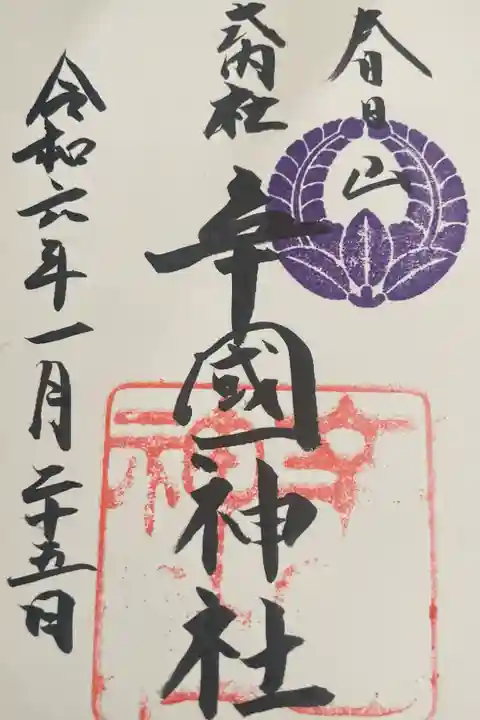 春日山
式内社
辛國神社
令和六年一月二十五日